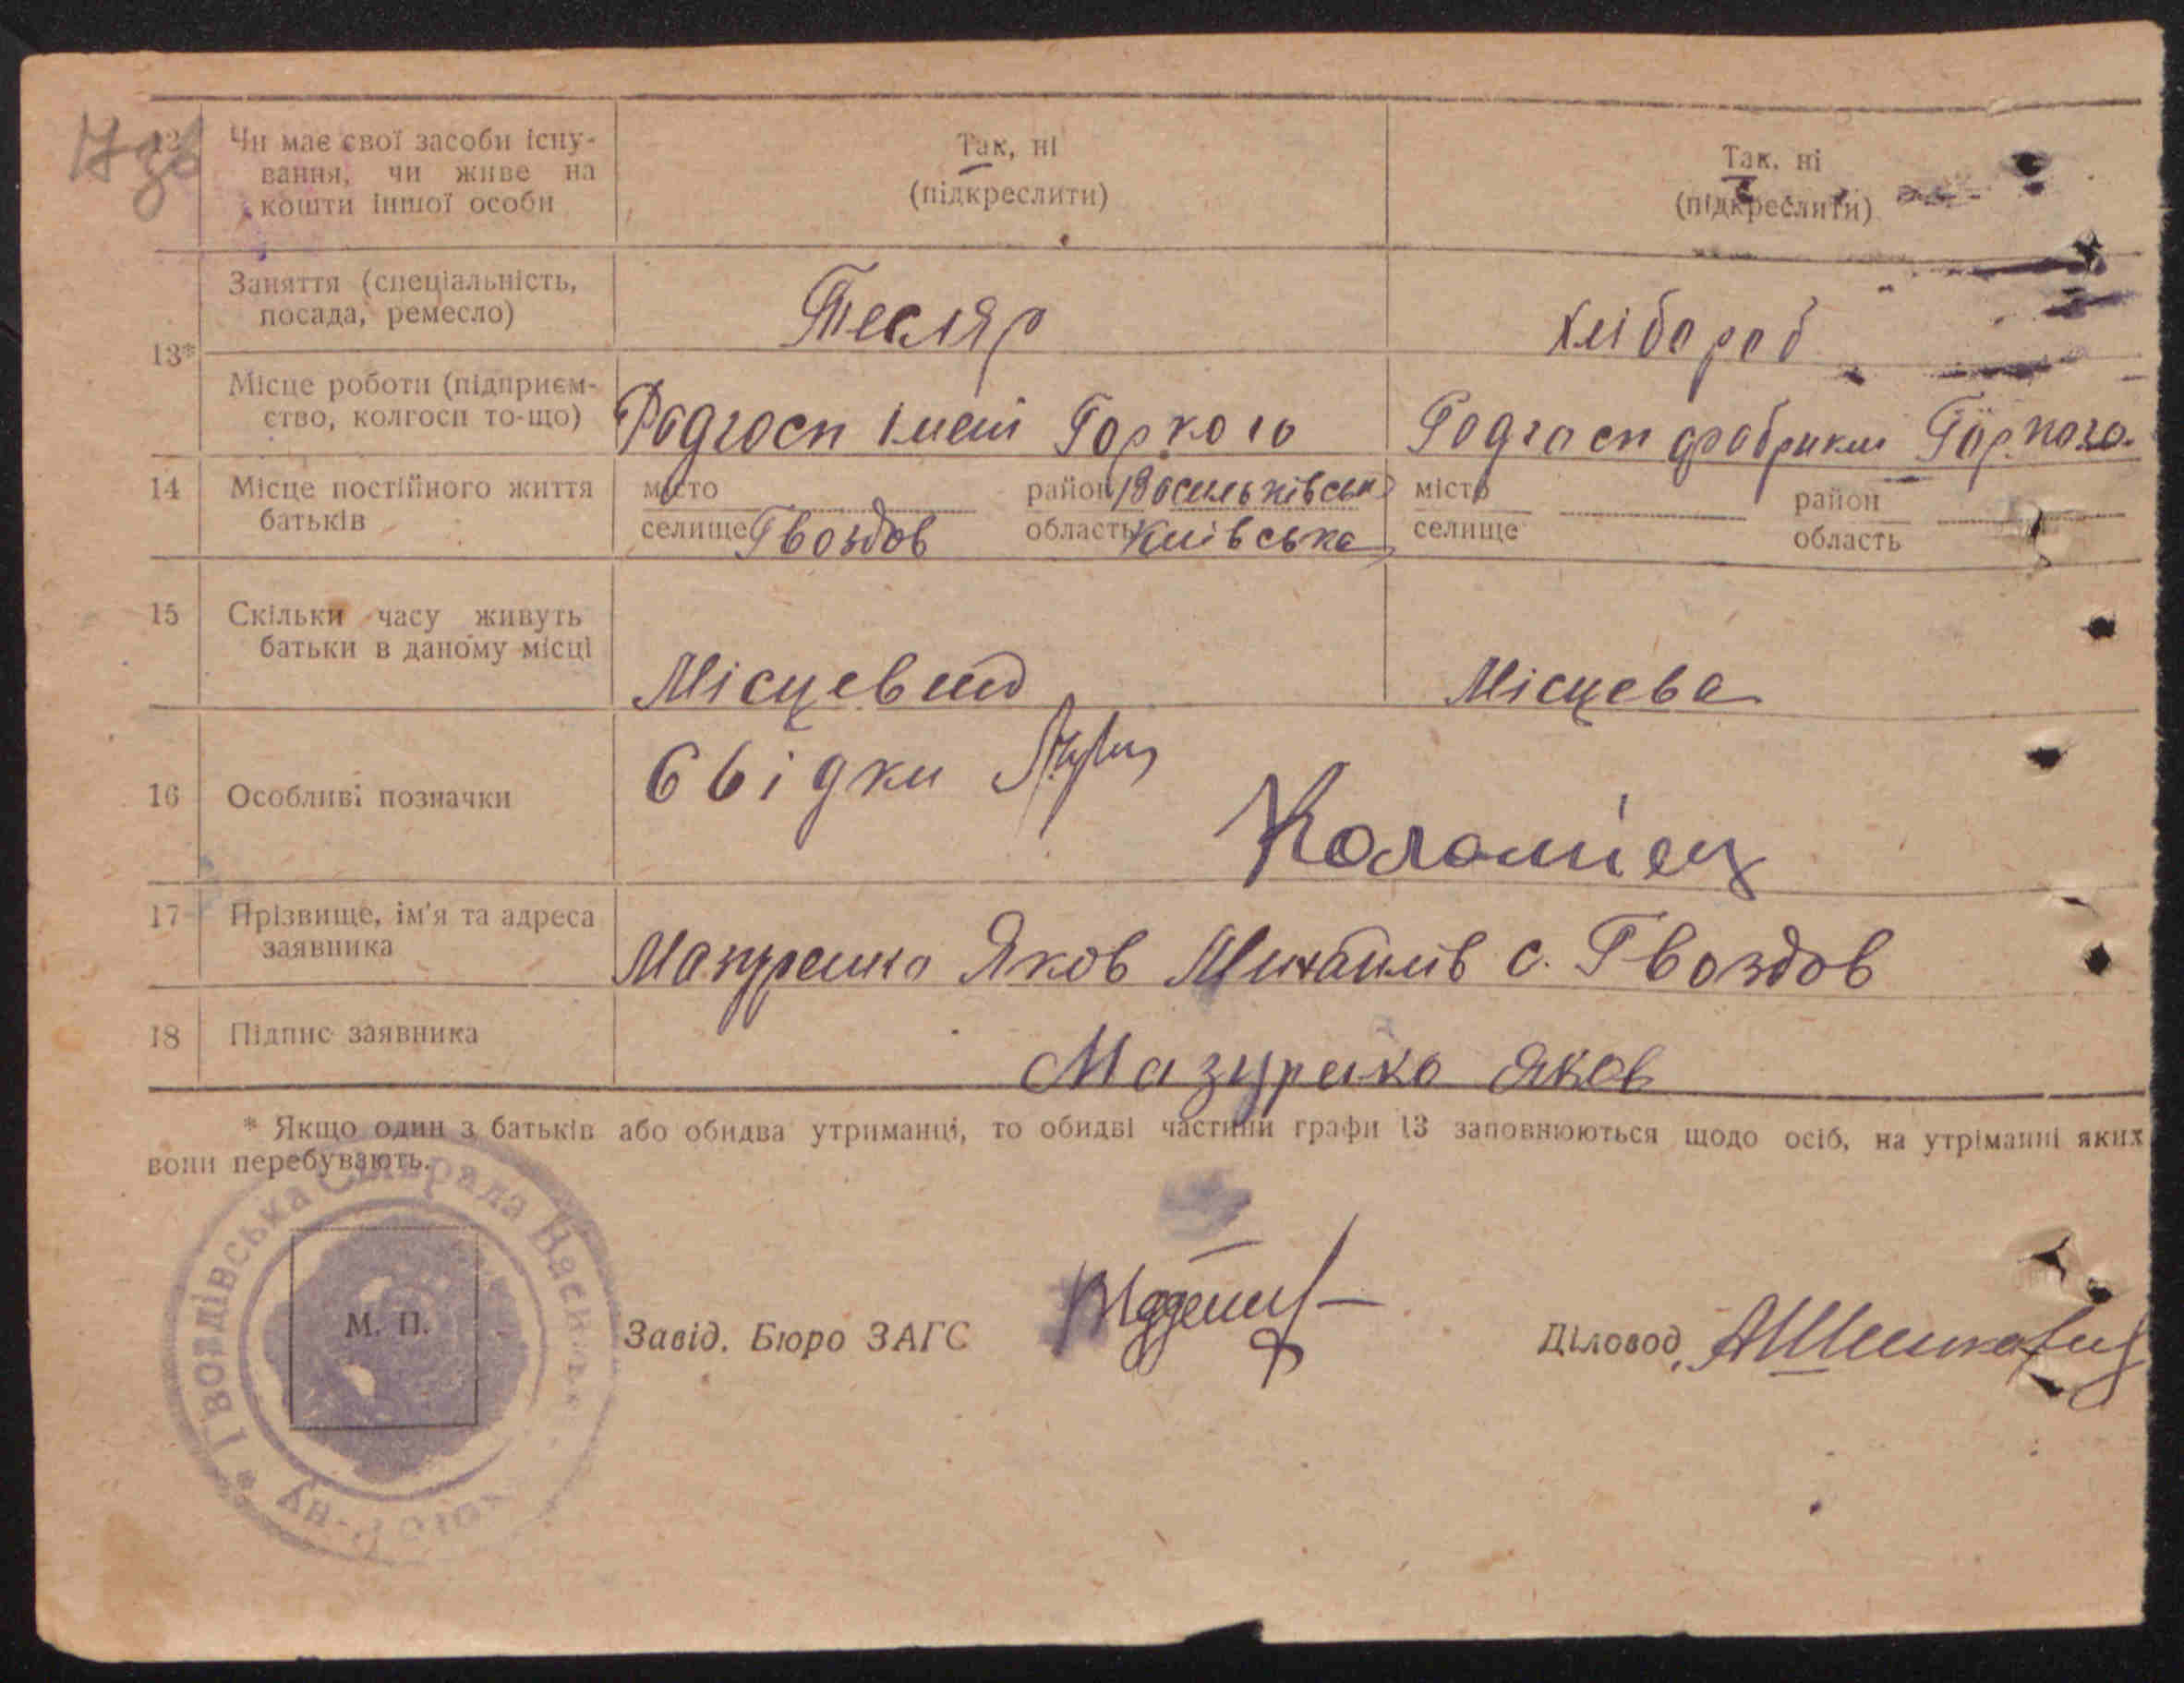 17 зв
12 Чи має свої засоби існу-
вання, чи живе на
кошти іншої особи
Так, ні
(підкреслити)
Так, ні
(підкреслити)
13*
Заняття (спеціальність,
посада, ремесло)
Тесляр
Хлібороб
Місце роботи (підприєм-
ство, колгосп то-що)
Радгосп імені Горкого
Радгосп фабрики Горкого.
14 Місце постійного життя
батьків
місто
селище Гвоздов
район Васильківськ
область Київська
місто
селище
район
область
15 Скільки часу живуть
батьки в даному місці
Місцевий
Місцева
16 Особливі позначки
Свідки
Коломієц
17 Прізвище, ім'я та адреса
заявника
Мазуренко Яков Михайлів с. Гвоздов
18 Підпис заявника
Мазуренко Яков
* Якщо один з батьків або обидва утриманці, то обидві частини графи 13 заповнюються щодо осіб, на утріманні яких
вони перебувають.
* Гвоздівська Сільрада Васильк Р-ну
М. П.
Завід. Бюро ЗАГС
Діловод